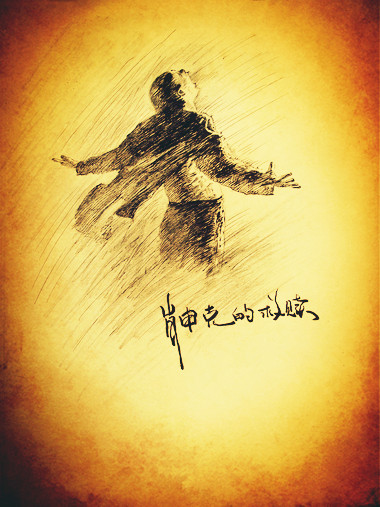 肖申克的救赎